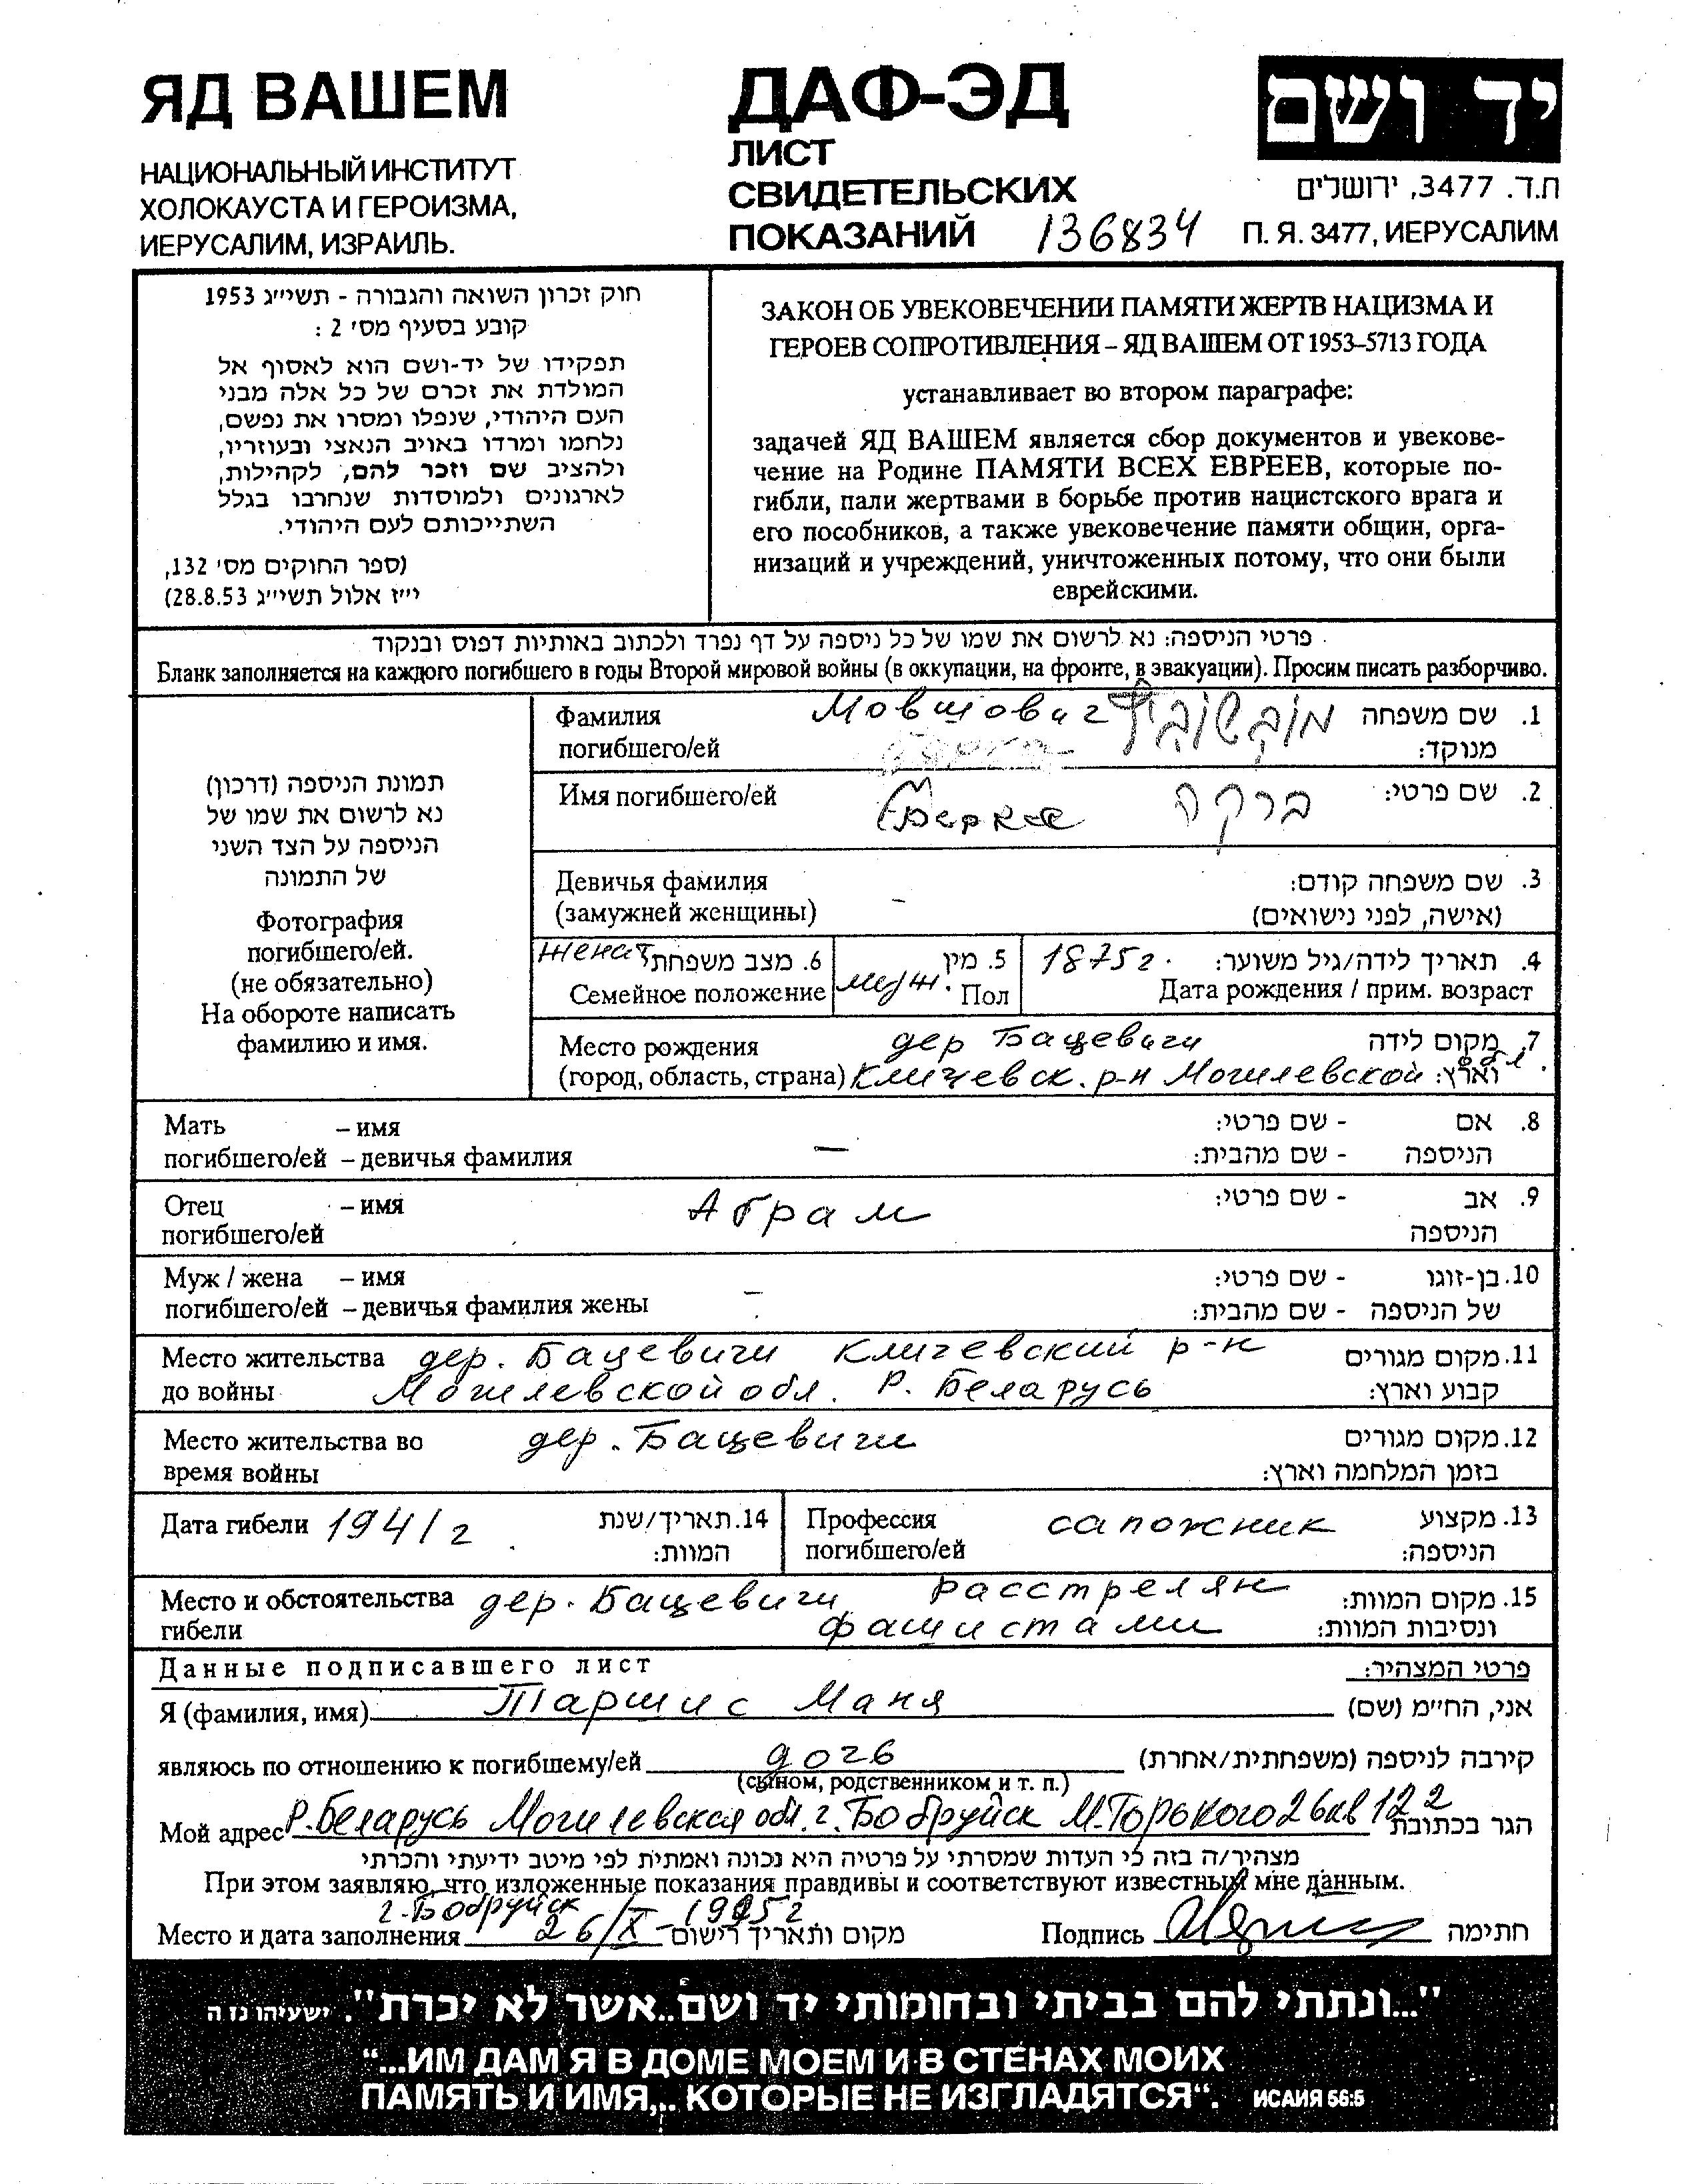 ЯД ВАШЕМ
НАЦИОНАЛЬНЫЙ ИНСТИТУТ
ХОЛОКАУСТА И ГЕРОИЗМА,
ИЕРУСАЛИМ, ИЗРАИЛЬ.
ДАФ-ЭД
ЛИСТ
СВИДЕТЕЛЬСКИХ
ПОКАЗАНИЙ 136834
יד ושם
ת.ד. 3477, ירושלים
П. Я. 3477, ИЕРУСАЛИМ
חוק זכרון השואה והגבורה - תשי״ג 1953
קובע בסעיף מס' 2 :
תפקידו של יד-ושם הוא לאסוף אל
המולדת את זכרם של כל אלה מבני
העם היהודי, שנפלו ומסרו את נפשם,
נלחמו ומרדו באויב הנאצי ובעוזריו,
ולהציב שם וזכר להם, לקהילות,
לארגונים ולמוסדות שנחרבו בגלל
השתייכותם לעם היהודי.
(ספר החוקים מס' 132,
י״ז אלול תשי״ג 28.8.53)
ЗАКОН ОБ УВЕКОВЕЧЕНИИ ПАМЯТИ ЖЕРТВ НАЦИЗМА И
ГЕРОЕВ СОПРОТИВЛЕНИЯ – ЯД ВАШЕМ ОТ 1953–5713 ГОДА
устанавливает во втором параграфе:
задачей ЯД ВАШЕМ является сбор документов и увекове-
чение на Родине ПАМЯТИ ВСЕХ ЕВРЕЕВ, которые по-
гибли, пали жертвами в борьбе против нацистского врага и
его пособников, а также увековечение памяти общин, орга-
низаций и учреждений, уничтоженных потому, что они были
еврейскими.
פרטי הניספה: נא לרשום את שמו של כל ניספה על דף נפרד ולכתוב באותיות דפוס ובנקוד
Бланк заполняется на каждого погибшего в годы Второй мировой войны (в оккупации, на фронте, в эвакуации). Просим писать разборчиво.
תמונת הניספה (דרכון)
נא לרשום את שמו של
הניספה על הצד השני
של התמונה
Фотография
погибшего/ей.
(не обязательно)
На обороте написать
фамилию и имя.
Фамилия Мовшович מובשוביץ 1. שם משפחה
погибшего/ей מנוקד:
Имя погибшего/ей Берка ברקה 2. שם פרטי:
Девичья фамилия 3. שם משפחה קודם:
(замужней женщины) – (אישה, לפני נישואים)
женат 6. מצב משפחתי 5. מין 1875 г. 4. תאריך לידה/גיל משוער:
Семейное положение муж. Пол Дата рождения / прим. возраст
Место рождения дер Бацевичи 7. מקום לידה
(город, область, страна) Кличевск. р-н Могилевской обл. וארץ:
Мать – имя 8. אם - שם פרטי:
погибшего/ей – девичья фамилия – הניספה - שם מהבית:
Отец – имя Абрам 9. אב - שם פרטי:
погибшего/ей הניספה
Муж / жена – имя 10. בן-זוגו - שם פרטי:
погибшего/ей – девичья фамилия жены – של הניספה - שם מהבית:
Место жительства дер. Бацевичи Кличевский р-н 11. מקום מגורים
до войны Могилевской обл. Р. Беларусь קבוע וארץ:
Место жительства во дер. Бацевичи 12. מקום מגורים
время войны בזמן המלחמה וארץ:
Дата гибели 1941 г. 14. תאריך/שנת
המוות:
Профессия сапожник 13. מקצוע
погибшего/ей הניספה:
Место и обстоятельства дер. Бацевичи расстрелян 15. מקום המוות:
гибели фашистами ונסיבות המוות:
Данные подписавшего лист פרטי המצהיר:
Я (фамилия, имя) Таршис Маня אני, החי״מ (שם)
являюсь по отношению к погибшему/ей дочь קירבה לניספה (משפחתית/אחרת)
(сыном, родственником и т. п.)
Мой адрес Р. Беларусь Могилевская обл. г. Бобруйск М. Горького 26 кв 122 הגר בכתובת
מצהיר/ה בזה כי העדות שמסרתי על פרטיה היא נכונה ואמתית לפי מיטב ידיעתי והכרתי
При этом заявляю, что изложенные показания правдивы и соответствуют известным мне данным.
г. Бобруйск
Место и дата заполнения 26/X – 1995 г מקום ותאריך רישום Подпись חתימה
"...ונתתי להם בביתי ובחומותי יד ושם..אשר לא יכרת". ישעיהו נז ה
“...ИМ ДАМ Я В ДОМЕ МОЕМ И В СТЕНАХ МОИХ
ПАМЯТЬ И ИМЯ,.. КОТОРЫЕ НЕ ИЗГЛАДЯТСЯ“. ИСАИЯ 56:5